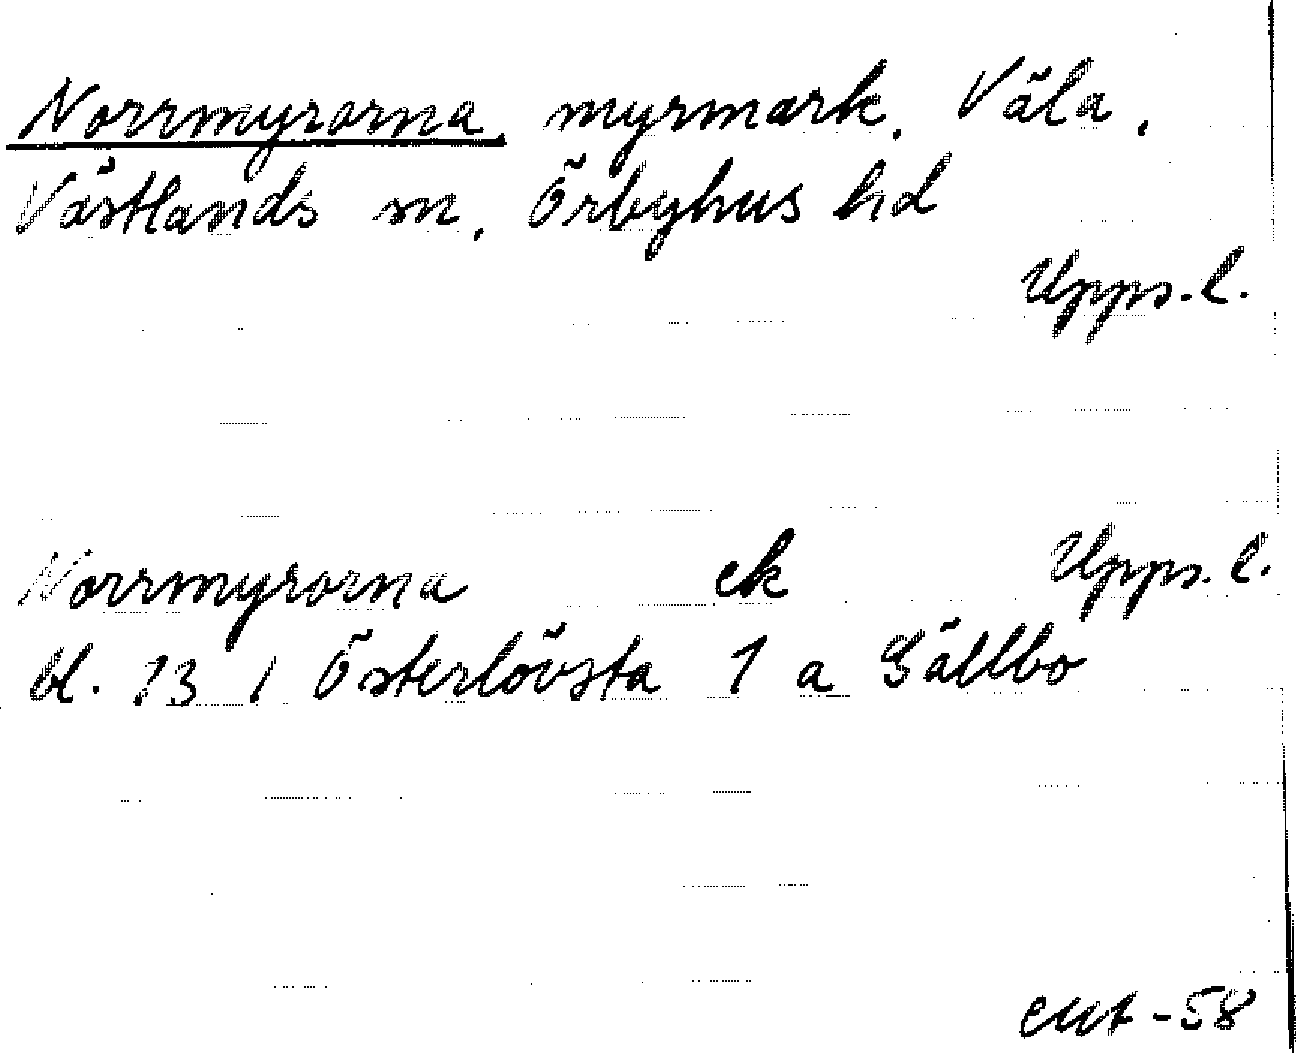 Norrmyrorna, myrmark, Väla,
Västlands sn, Örbyhus hd
Upps. l.
Norrmyrorna ek Upps. l.
bl. 13 I Österlövsta 1 a Gällbo
-58